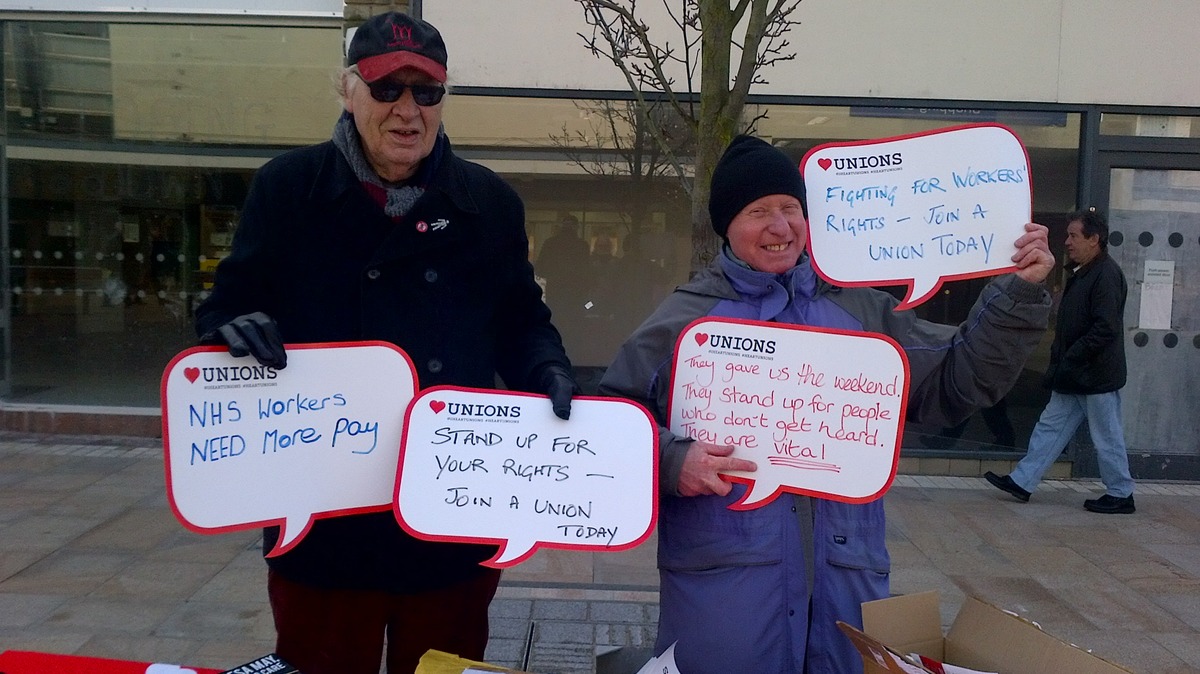 UNIONS
#HEARTUNIONS #HEARTUNIONS
NHS Workers
NEED More pay
UNIONS
#HEARTUNIONS #HEARTUNIONS
STAND UP FOR
YOUR RIGHTS —
JOIN A UNION
TODAY
UNIONS
#HEARTUNIONS #HEARTUNIONS
They gave us the weekend.
They stand up for people
who don't get heard.
They are vital
UNIONS
#HEARTUNIONS #HEARTUNIONS
FIGHTING FOR WORKERS'
RIGHTS — JOIN A
UNION TODAY